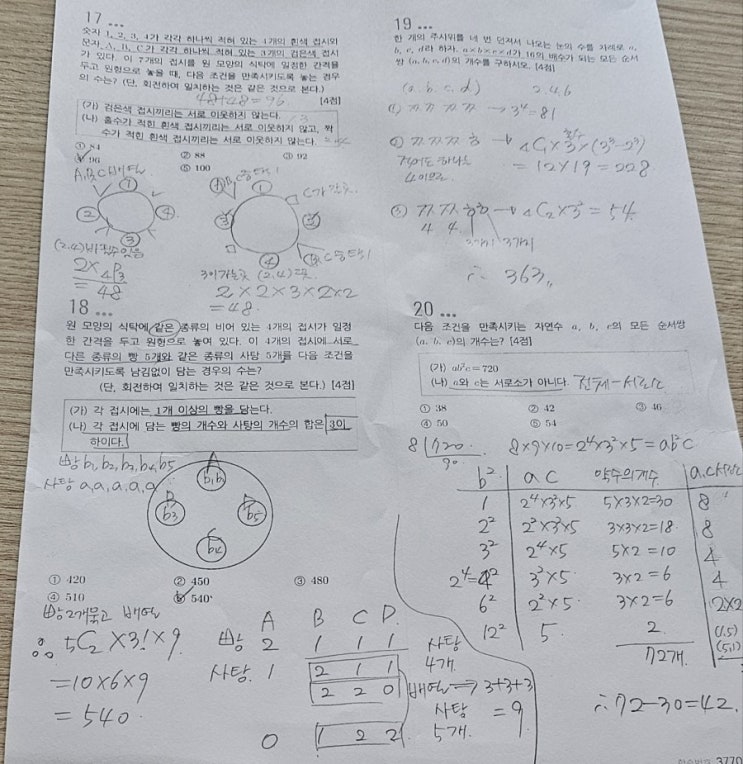 17 ...
숫자 1, 2, 3, 4가 각각 하나씩 적혀 있는 4개의 흰색 접시와
문자 A, B, C가 각각 하나씩 적혀 있는 3개의 검은색 접시
가 있다. 이 7개의 접시를 원 모양의 식탁에 일정한 간격을
두고 원형으로 놓을 때, 다음 조건을 만족시키도록 놓는 경우
의 수는? (단, 회전하여 일치하는 것은 같은 것으로 본다.)
48+48=96.
[4점]
(가) 검은색 접시끼리는 서로 이웃하지 않는다.
(나) 홀수가 적힌 흰색 접시끼리는 서로 이웃하지 않고, 짝
수가 적힌 흰색 접시끼리는 서로 이웃하지 않는다.
① 84
② 88
③ 92
④ 96
⑤ 100
A,B,C 배열
1
2
4
3
(2,4) 바꿀수있음
2×4P3
= 48
1
4
C가 갈곳
2×2×3×2×2
= 48.
18 ...
원 모양의 식탁에 같은 종류의 비어 있는 4개의 접시가 일정
한 간격을 두고 원형으로 놓여 있다. 이 4개의 접시에 서로
다른 종류의 빵 5개와 같은 종류의 사탕 5개를 다음 조건을
만족시키도록 남김없이 담는 경우의 수는?
(단, 회전하여 일치하는 것은 같은 것으로 본다.) [4점]
(가) 각 접시에는 1개 이상의 빵을 담는다.
(나) 각 접시에 담는 빵의 개수와 사탕의 개수의 합은 3이
하이다.
빵 b1, b2, b3, b4, b5
사탕 a, a, a, a, a
A
b1b2
B
b3
D
b5
b4
① 420
② 450
③ 480
④ 510
⑤ 540
빵2개묶고 배열
∴ 5C2 × 3! × 9
= 10×6×9
= 540.
A B C D
빵 2 1 1 1
사탕 1 2 1 1
2 2 0
0 1 2 2
사탕
4개
배열 ⇒ 3+3+3
= 9
사탕
5개
19 ...
한 개의 주사위를 네 번 던져서 나오는 눈의 수를 차례로 a,
b, c, d라 하자. a×b×c×d가 16의 배수가 되는 모든 순서
쌍 (a, b, c, d)의 개수를 구하시오. [4점]
(a, b, c, d) 2,4,6
① 짜 짜 짜 짜 → 3⁴=81
② 짜 짜 짜 홀 → 4C1×3×(3³-2³)
= 12×19=228
적어도 하나는
4이므로.
③ 짜 짜 홀 홀 → 4C2×3²=54.
4 4 3가지 3가지
∴ 363
20 ...
다음 조건을 만족시키는 자연수 a, b, c의 모든 순서쌍
(a, b, c)의 개수는? [4점]
(가) ab²c=720
(나) a와 c는 서로소가 아니다.
전체-서로소
① 38
② 42
③ 46
④ 50
⑤ 54
8 | 720
90
8×9×10=2⁴×3²×5=ab²c
b² ac 약수의개수
1 2⁴×3²×5 5×3×2=30 8
2² 2²×3²×5 3×3×2=18 8
3² 2⁴×5 5×2=10 4
2⁴=4² 3²×5 3×2=6 4
6² 2²×5 3×2=6 2×2
12² 5 2 (1,5)
(5,1)
72개
∴ 72-30=42.